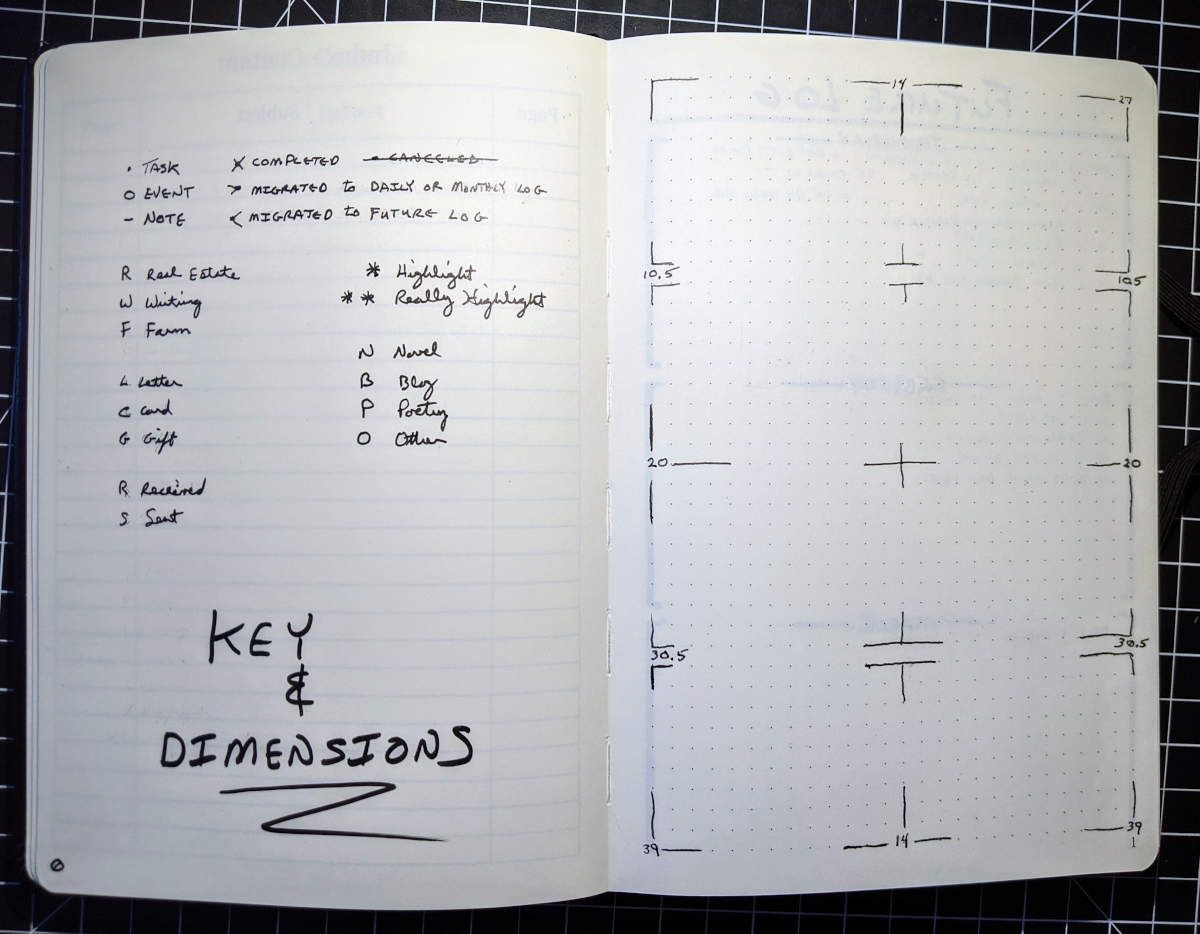 • TASK X COMPLETED • CANCELED
O EVENT > MIGRATED to DAILY OR MONTHLY LOG
– NOTE < MIGRATED to FUTURE LOG
R Real Estate * Highlight
W Writing ** Really Highlight
F Farm
N Novel
L Letter B Blog
C Card P Poetry
G Gift O Other
R Received
S Sent
KEY
&
DIMENSIONS
0
14
27
10.5 10.5
20 20
30.5 30.5
39 14 39
1
FUTURE LOG